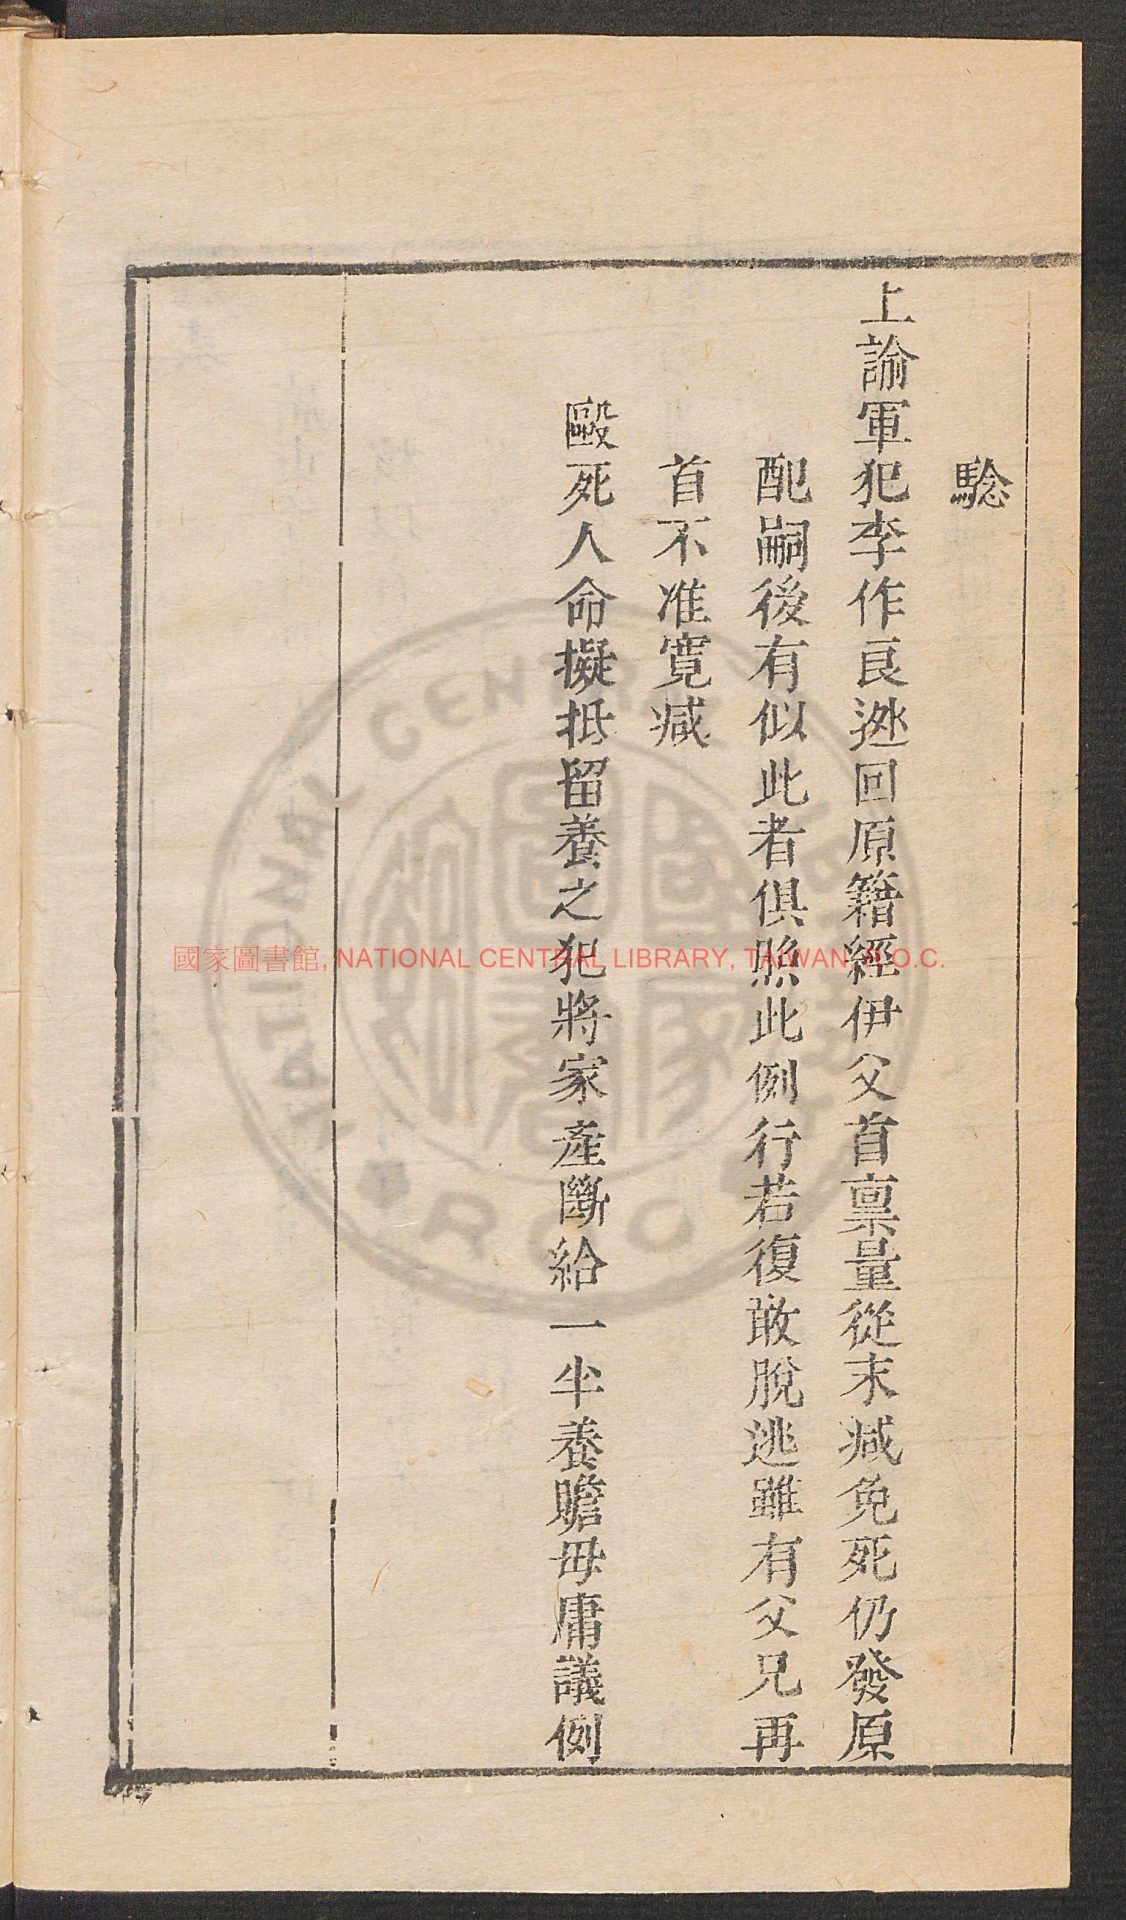 騐
上諭軍犯李作良逃回原籍經伊父首禀量從末减免死仍發原
配嗣後有似此者俱照此例行若復敢脫逃雖有父兄再
首不准寬减
毆死人命擬抵留養之犯將家產斷給一半養贍毋庸議例
國家圖書館, NATIONAL CENTRAL LIBRARY, TAIWAN, R.O.C.